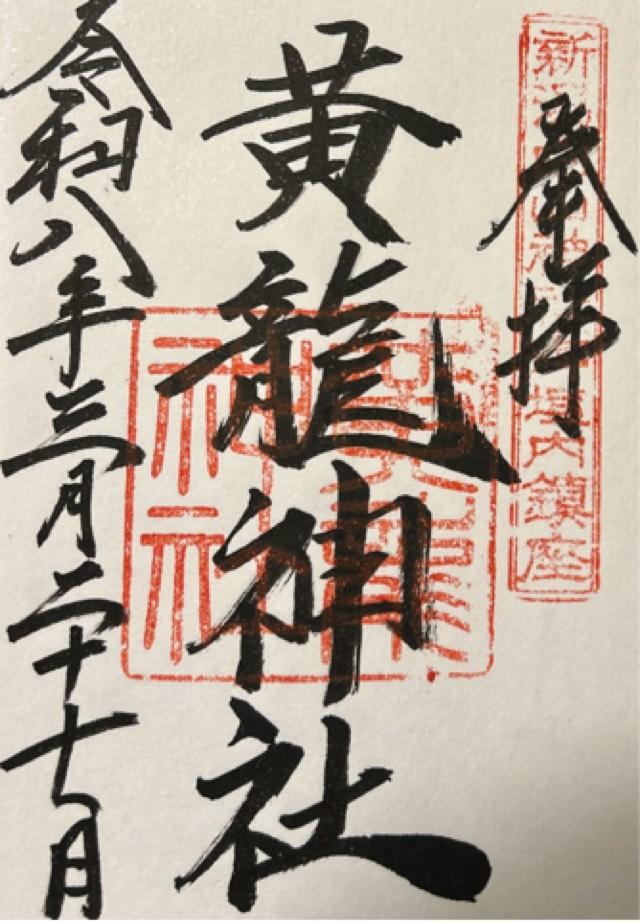 新 神 境内鎮座
奉拝
黄龍神社
黄龍
神社
令和八年三月二十七日